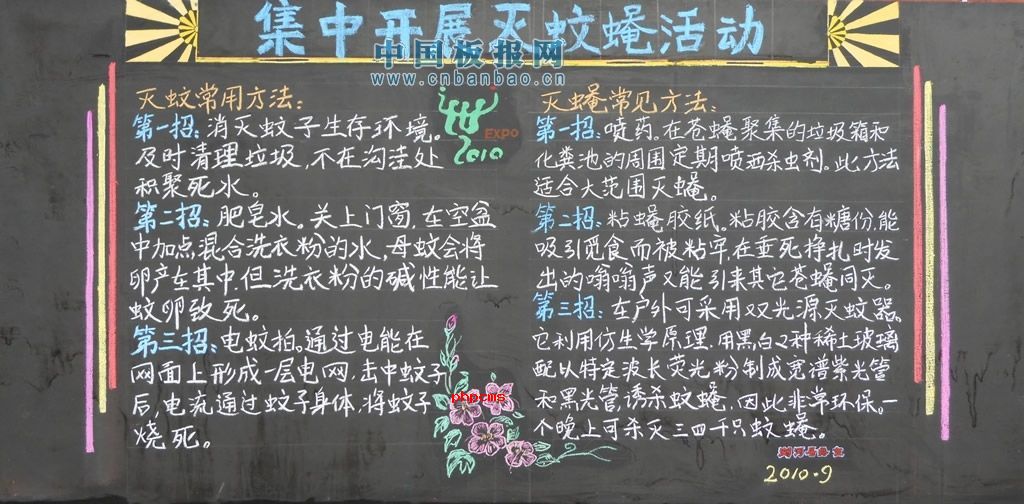 集中开展灭蚊蝇活动
中国板报网
www.cnbanbao.cn
灭蚊常用方法：
第一招：消灭蚊子生存环境。
及时清理垃圾，不在沟洼处
积聚死水。
第二招：肥皂水。关上门窗，在空盆
中加点混合洗衣粉的水，母蚊会将
卵产在其中，但洗衣粉的碱性能让
蚊卵致死。
第三招：电蚊拍，通过电能在
网面上形成一层电网，击中蚊子
后，电流通过蚊子身体，将蚊子
烧死。
EXPO
2010
phpcms
灭蝇常见方法：
第一招：喷药。在苍蝇聚集的垃圾箱和
化粪池的周围定期喷洒杀虫剂。此方法
适合大范围灭蝇。
第二招：粘蝇胶纸。粘胶含有糖份，能
吸引觅食而被粘牢，在垂死挣扎时发
出的嗡嗡声又能引来其它苍蝇同灭。
第三招：在户外可采用双光源灭蚊器，
它利用仿生学原理，用黑白2种稀土玻璃
配以特定波长荧光粉制成宽谱紫光管
和黑光管，诱杀蚊蝇，因此非常环保。一
个晚上可杀灭三四千只蚊蝇。
2010.9